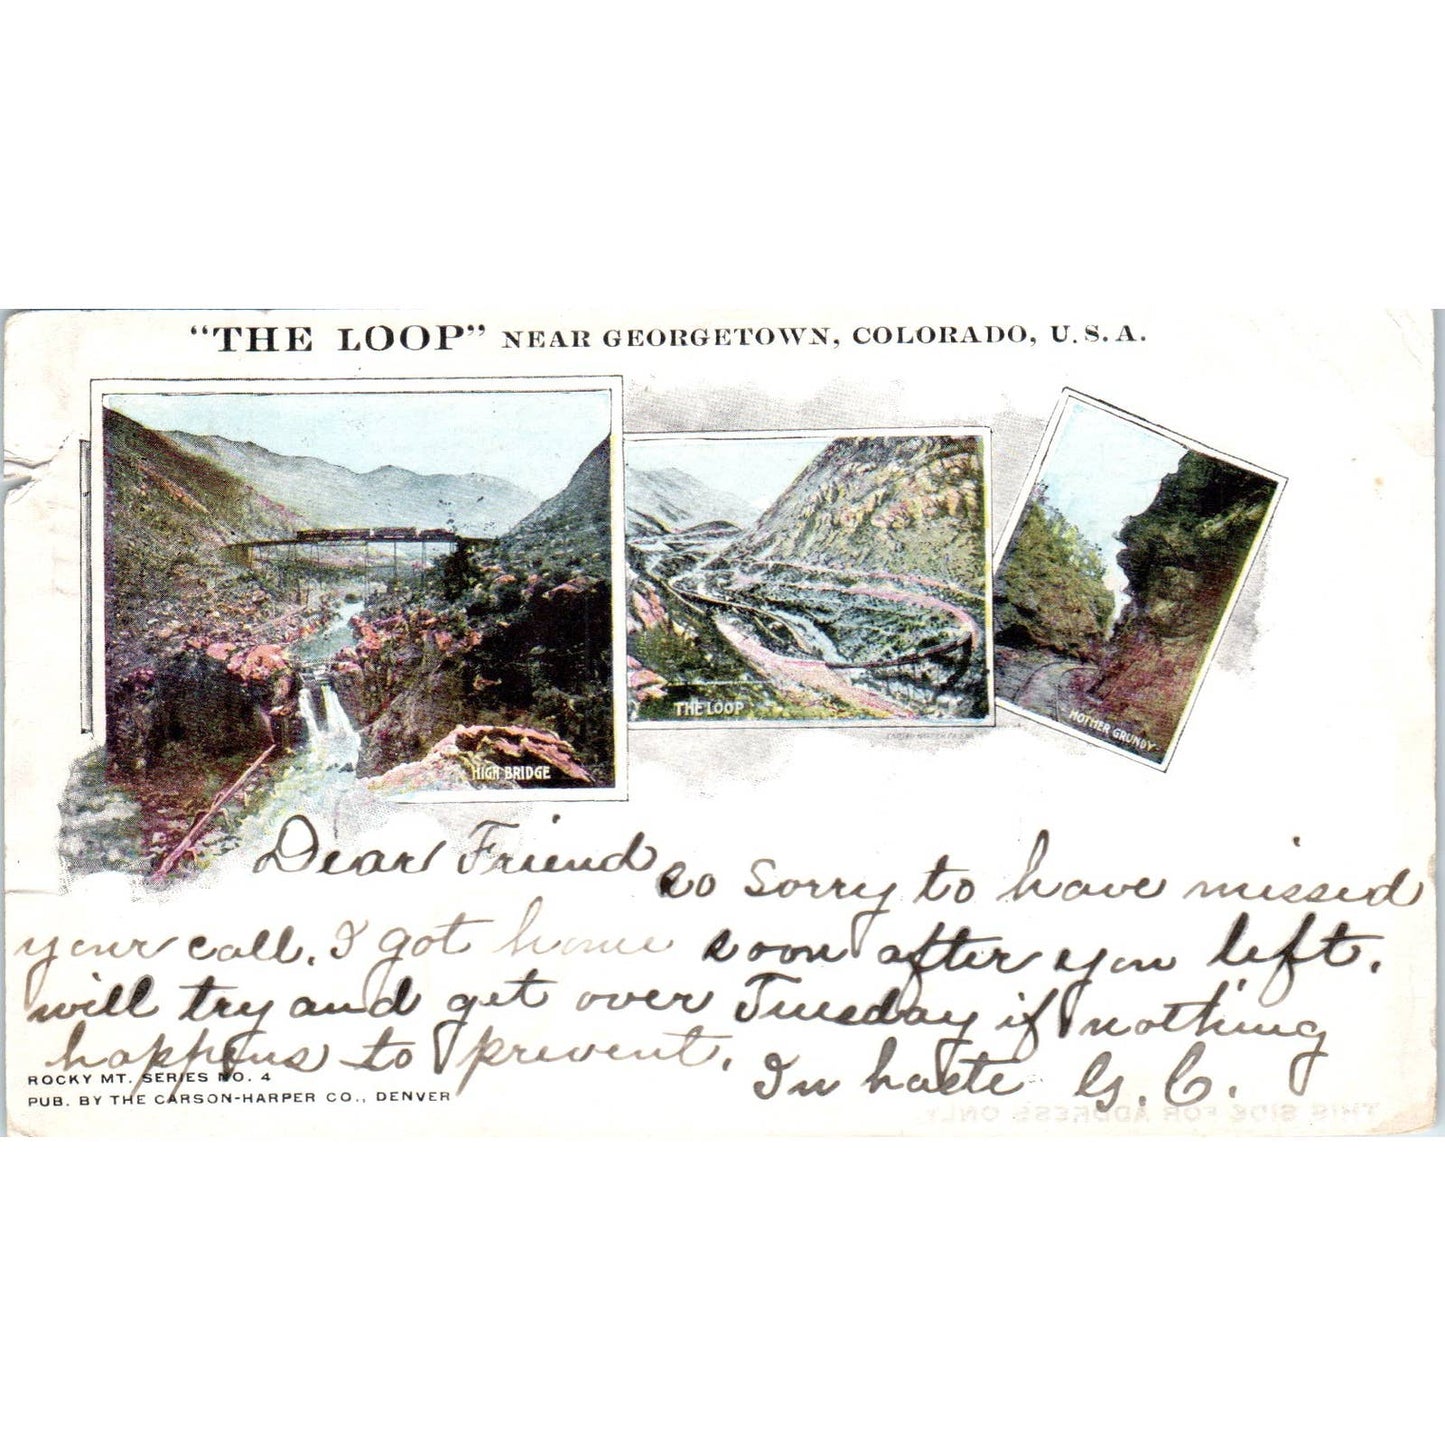 "THE LOOP" NEAR GEORGETOWN, COLORADO, U.S.A.
HIGH BRIDGE
THE LOOP
MOTHER GRUNDY
Dear Friend
so sorry to have missed
your call. I got home soon after you left.
will try and get over Tuesday if nothing
happens to prevent.
In haste G. C.
ROCKY MT. SERIES NO. 4
PUB. BY THE CARSON-HARPER CO., DENVER
THIS SIDE FOR ADDRESS ONLY.